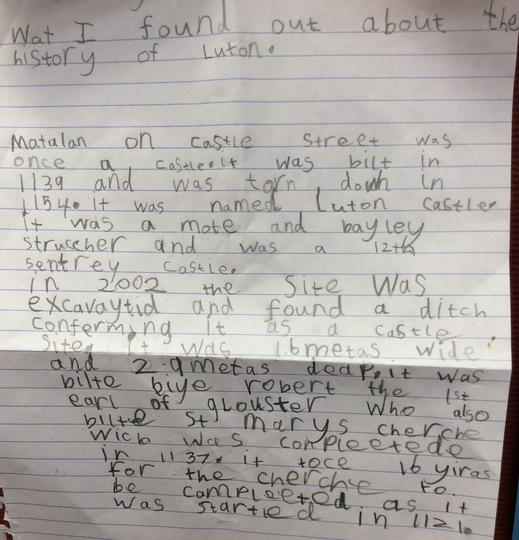 Wat I found out about the
history of Luton.
Matalan on castle street was
once a castle. It was bilt in
1139 and was torn down in
1154. It was named Luton castle.
it was a mote and bayley
struccher and was a 12th
sentrey castle.
in 2002 the site was
excavaytid and found a ditch
conferming it as a castle
site. it was 16 metas wide
and 2.9metas deap. it was
bilte biye robert the 1st
earl of glouster who also
bilte st marys cherche
wich was compleetede
in 1137. it toce 16 yiras
for the cherche to.
be campleeted as it
was started in 1121.